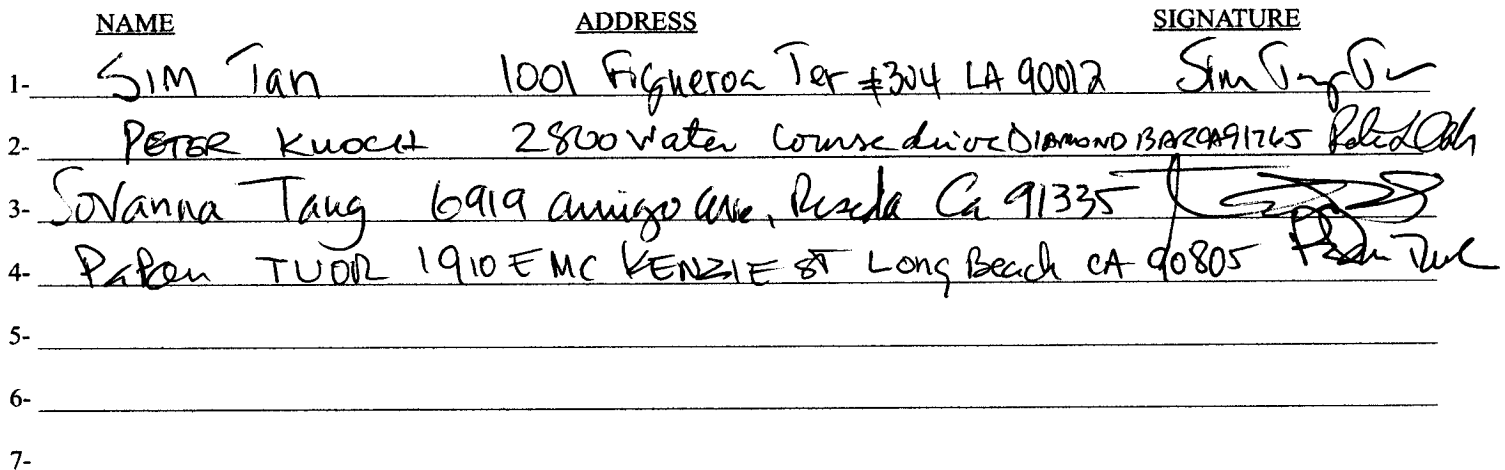 NAME ADDRESS SIGNATURE
1- SIM Tan 1001 Figueroa Ter #304 LA 90012 Sim
2- PETER KUOCH 2800 Water Course drive DIAMOND BAR CA 91765
3- Sovanna Tang 6919 amigo ave, Reseda Ca 91335
4- PaPon TUOR 1910 E MC KENZIE ST Long Beach CA 90805
5-
6-
7-